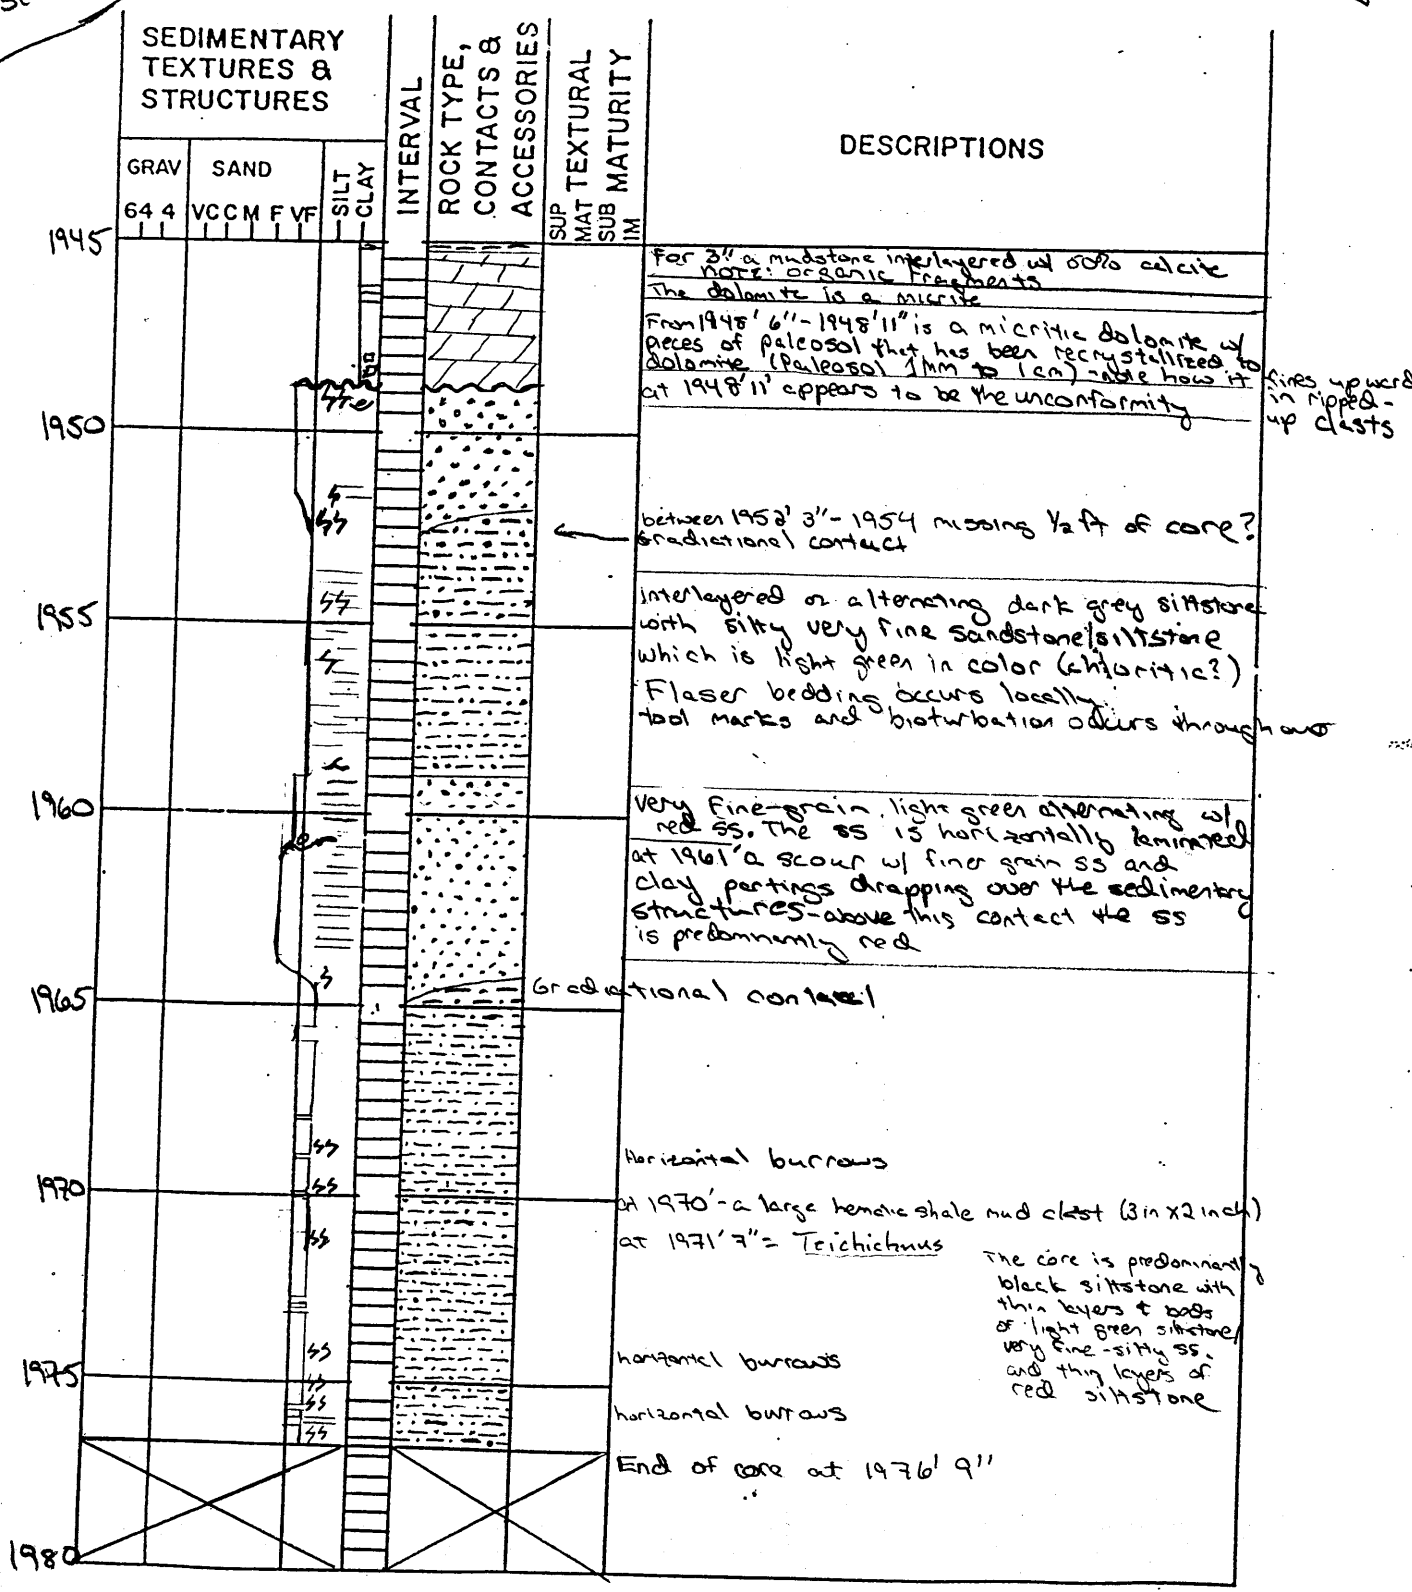 SEDIMENTARY
TEXTURES &
STRUCTURES
INTERVAL
ROCK TYPE,
CONTACTS &
ACCESSORIES
TEXTURAL
MATURITY
DESCRIPTIONS
GRAV
SAND
SILT
CLAY
64 4
VC C M F VF
SUP
MAT
SUB
IM
1945
For 3" a mudstone interlayered w/ 60% calcite
NOTE: organic fragments
The dolomite is a micrite
From 1948' 6"-1948'11" is a micritic dolomite w/
pieces of paleosol that has been recrystallized to
dolomite (Paleosol 1mm to 1cm) - note how it fines upward
in ripped-
up clasts
at 1948'11' appears to be the unconformity
1950
between 1952' 3"- 1954 missing 1/2 ft of core?
Gradictional contact
interlayered or alternating dark grey siltstone
with silty very fine sandstone/siltstone
which is light green in color (chloritic?)
Flaser bedding occurs locally.
tool marks and bioturbation occurs throughout
1955
1960
very fine-grain, light green alternating w/
red ss. The ss is horizontally laminated
at 1961' a scour w/ finer grain ss and
clay partings drapping over the sedimentary
structures-above this contact the ss
is predomnantly red
1965
Gradictional contact
Horizontal burrows
1970
at 1970'- a large hematic shale mud clast (3in x 2 inch)
at 1971'7" = Teichichnus
The core is predominantly
black siltstone with
thin layers & beds
of light green siltstone/
very fine-silty ss.
and thin layers of
red siltstone
horizontal burrows
1975
horizontal burrows
End of core at 1976' 9"
1980